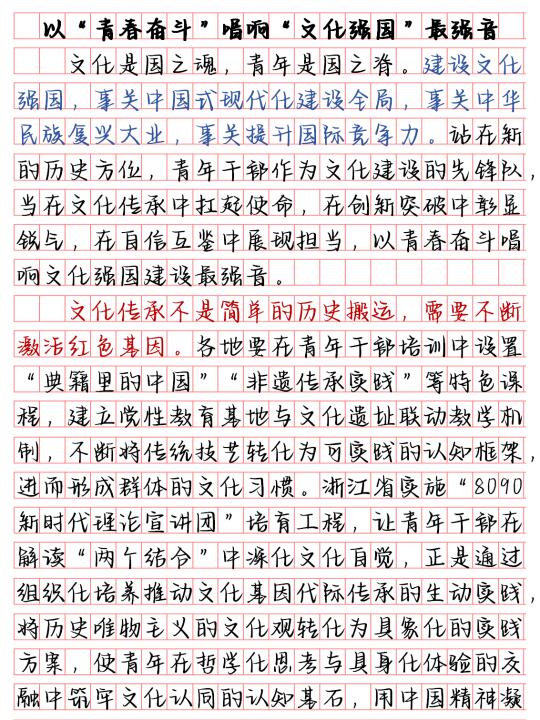 以“青春奋斗”唱响“文化强国”最强音
文化是国之魂，青年是国之脊。建设文化
强国，事关中国式现代化建设全局，事关中华
民族复兴大业，事关提升国际竞争力。站在新
的历史方位，青年干部作为文化建设的先锋队，
当在文化传承中扛起使命，在创新突破中彰显
锐气，在自信互鉴中展现担当，以青春奋斗唱
响文化强国建设最强音。
文化传承不是简单的历史搬运，需要不断
激活红色基因。各地要在青年干部培训中设置
“典籍里的中国”“非遗传承实践”等特色课
程，建立党性教育基地与文化遗址联动教学机
制，不断将传统技艺转化为可实践的认知框架，
进而形成群体的文化习惯。浙江省实施“8090
新时代理论宣讲团”培育工程，让青年干部在
解读“两个结合”中深化文化自觉，正是通过
组织化培养推动文化基因代际传承的生动实践，
将历史唯物主义的文化观转化为具象化的实践
方案，使青年在哲学化思考与具身化体验的交
融中筑牢文化认同的认知基石，用中国精神凝